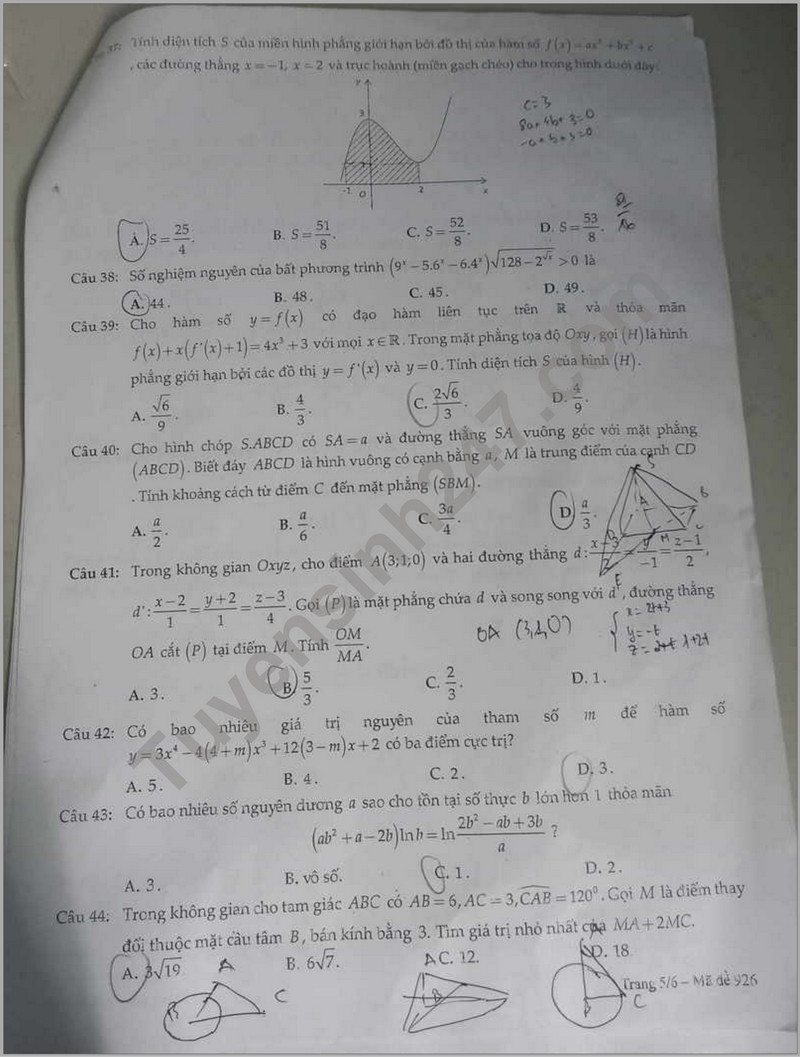 37: Tính diện tích S của miền hình phẳng giới hạn bởi đồ thị của hàm số f(x) = ax³ + bx² + c
, các đường thẳng x = −1, x = 2 và trục hoành (miền gạch chéo) cho trong hình dưới đây:
y
3
1
-1 O 2 x
c = 3
8a + 4b + 3 = 0
-a + b + 3 = 0
A. S = 25/4. B. S = 51/8. C. S = 52/8. D. S = 53/8.
Câu 38: Số nghiệm nguyên của bất phương trình (9ˣ − 5.6ˣ − 6.4ˣ)√(128 − 2^√x) > 0 là
A. 44. B. 48. C. 45. D. 49.
Câu 39: Cho hàm số y = f(x) có đạo hàm liên tục trên ℝ và thỏa mãn
f(x) + x(f'(x) + 1) = 4x³ + 3 với mọi x ∈ ℝ. Trong mặt phẳng tọa độ Oxy, gọi (H) là hình
phẳng giới hạn bởi các đồ thị y = f'(x) và y = 0. Tính diện tích S của hình (H).
A. √6/9. B. 4/3. C. 2√6/3. D. 4/9.
Câu 40: Cho hình chóp S.ABCD có SA = a và đường thẳng SA vuông góc với mặt phẳng
(ABCD). Biết đáy ABCD là hình vuông có cạnh bằng a, M là trung điểm của cạnh CD
. Tính khoảng cách từ điểm C đến mặt phẳng (SBM).
A. a/2. B. a/6. C. 3a/4. D. a/3.
S
A
B
D
M
C
E
Câu 41: Trong không gian Oxyz, cho điểm A(3;1;0) và hai đường thẳng d: (x−3)/2 = y/−1 = (z−1)/2,
d': (x−2)/1 = (y+2)/1 = (z−3)/4. Gọi (P) là mặt phẳng chứa d và song song với d', đường thẳng
OA cắt (P) tại điểm M. Tính OM/MA.
OA (3,1,0)
x = 2t+3
y = -t
z = 1+2t
A. 3. B. 5/3. C. 2/3. D. 1.
Câu 42: Có bao nhiêu giá trị nguyên của tham số m để hàm số
y = 3x⁴ − 4(4+m)x³ + 12(3−m)x + 2 có ba điểm cực trị?
A. 5. B. 4. C. 2. D. 3.
Câu 43: Có bao nhiêu số nguyên dương a sao cho tồn tại số thực b lớn hơn 1 thỏa mãn
(ab² + a − 2b)ln b = ln (2b² − ab + 3b)/a ?
A. 3. B. vô số. C. 1. D. 2.
Câu 44: Trong không gian cho tam giác ABC có AB = 6, AC = 3, CAB = 120⁰. Gọi M là điểm thay
đổi thuộc mặt cầu tâm B, bán kính bằng 3. Tìm giá trị nhỏ nhất của MA + 2MC.
A. 3√19 B. 6√7. C. 12. D. 18.
A
B
C
A
B
A
B
C
Trang 5/6 – Mã đề 926
Tuyensinh247.com